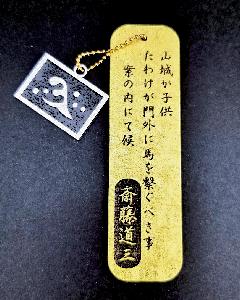 山城が子供
たわけが門外に馬を繋ぐべき事
案の内にて候
斎藤道三